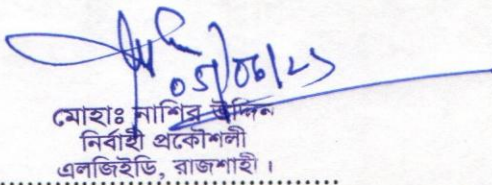 ০১/০৬/২১
মোহাঃ নাশির উদ্দিন
নির্বাহী প্রকৌশলী
এলজিইডি, রাজশাহী।